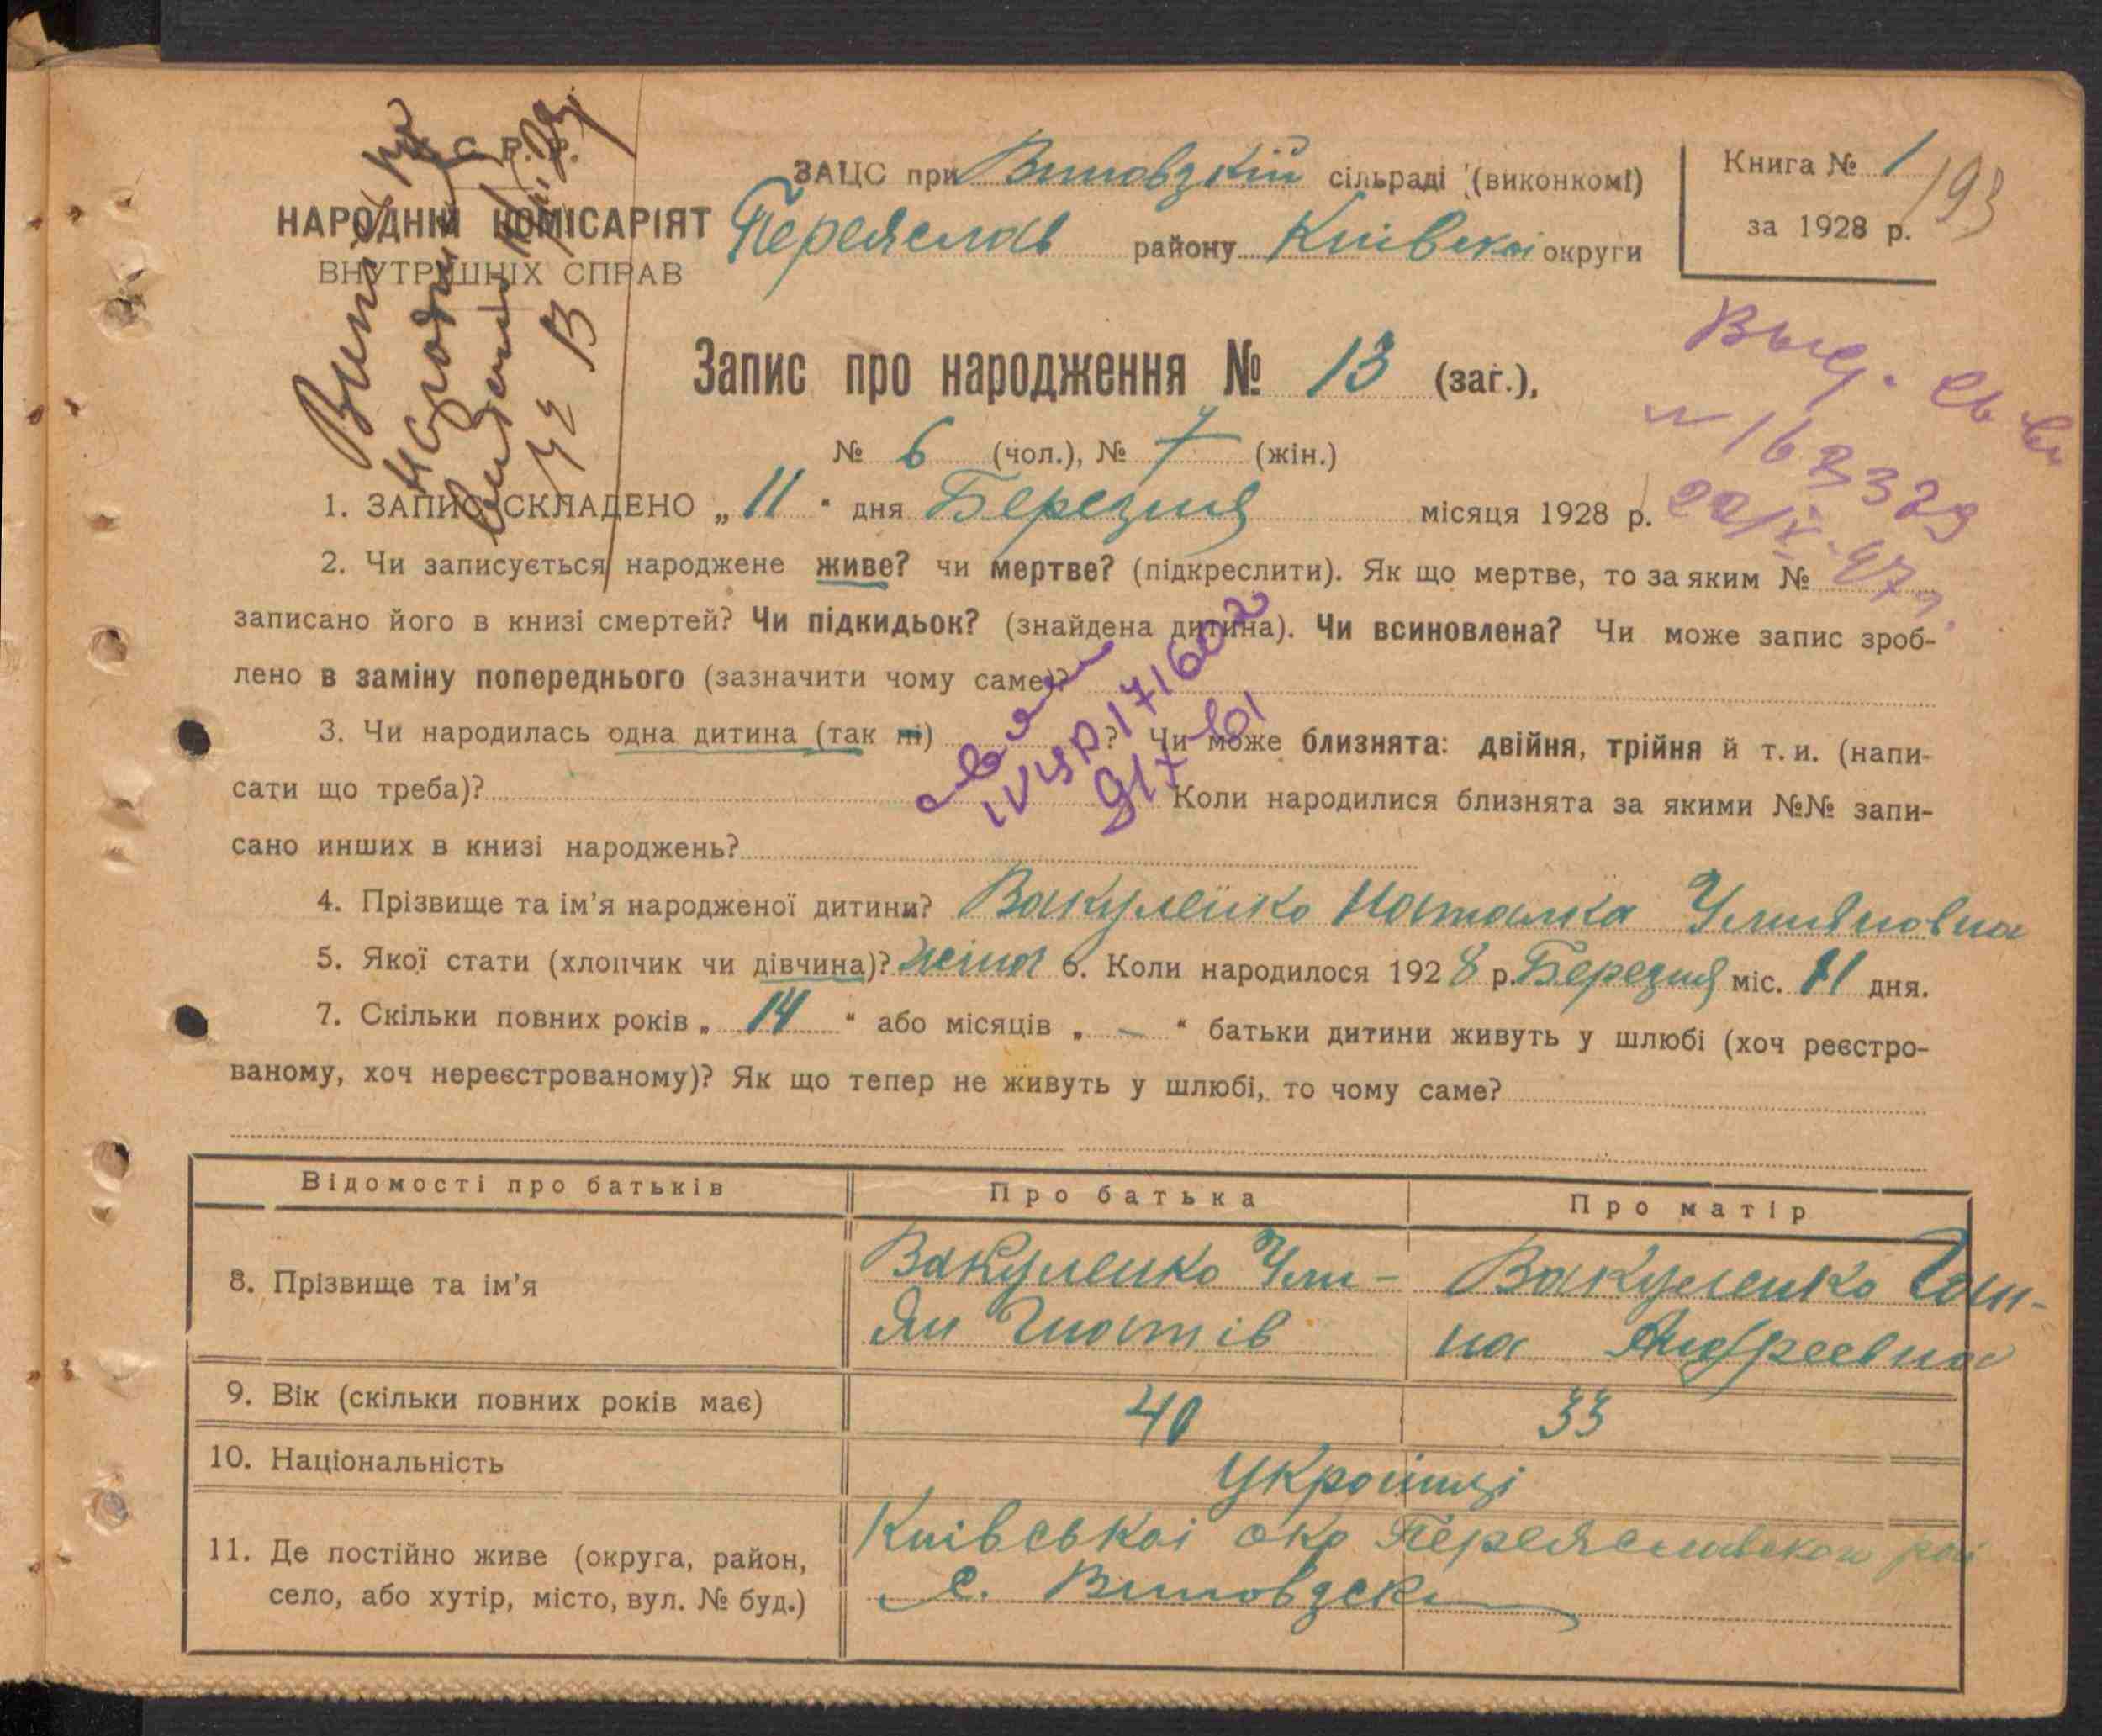 У.С.Р.Р.
НАРОДНІЙ КОМІСАРІЯТ
ВНУТРІШНІХ СПРАВ
ЗАЦС при сільраді (виконкомі)
Переяслав району Київскоі округи
Книга № 1
за 1928 р.
193
Запис про народження № 13 (заг.),
№ 6 (чол.), № 7 (жін.)
1. ЗАПИС СКЛАДЕНО „ 11 " дня Березня місяця 1928 р.
2. Чи записується народжене живе? чи мертве? (підкреслити). Як що мертве, то за яким №
записано його в книзі смертей? Чи підкидьок? (знайдена дитина). Чи всиновлена? Чи може запис зроб-
лено в заміну попереднього (зазначити чому саме)?
3. Чи народилась одна дитина (так ні) ? Чи може близнята: двійня, трійня й т. и. (напи-
сати що треба)? Коли народилися близнята за якими №№ запи-
сано инших в книзі народжень?
4. Прізвище та ім'я народженої дитини? Вакуленко Наталка Улияновна
5. Якої стати (хлопчик чи дівчина)? жіноч 6. Коли народилося 1928 р. Березня міс. 11 дня.
7. Скільки повних років „ 14 " або місяців „ — " батьки дитини живуть у шлюбі (хоч реєстро-
ваному, хоч нереєстрованому)? Як що тепер не живуть у шлюбі, то чому саме?
Відомості про батьків Про батька Про матір
8. Прізвище та ім'я
Вакуленко Ули-
ян Гнатів
Вакуленко Ган-
на Андреевна
9. Вік (скільки повних років має) 40 33
10. Національність Украінці
11. Де постійно живе (округа, район,
село, або хутір, місто, вул. № буд.)
Київськоі окр Переяславскои рай
с.